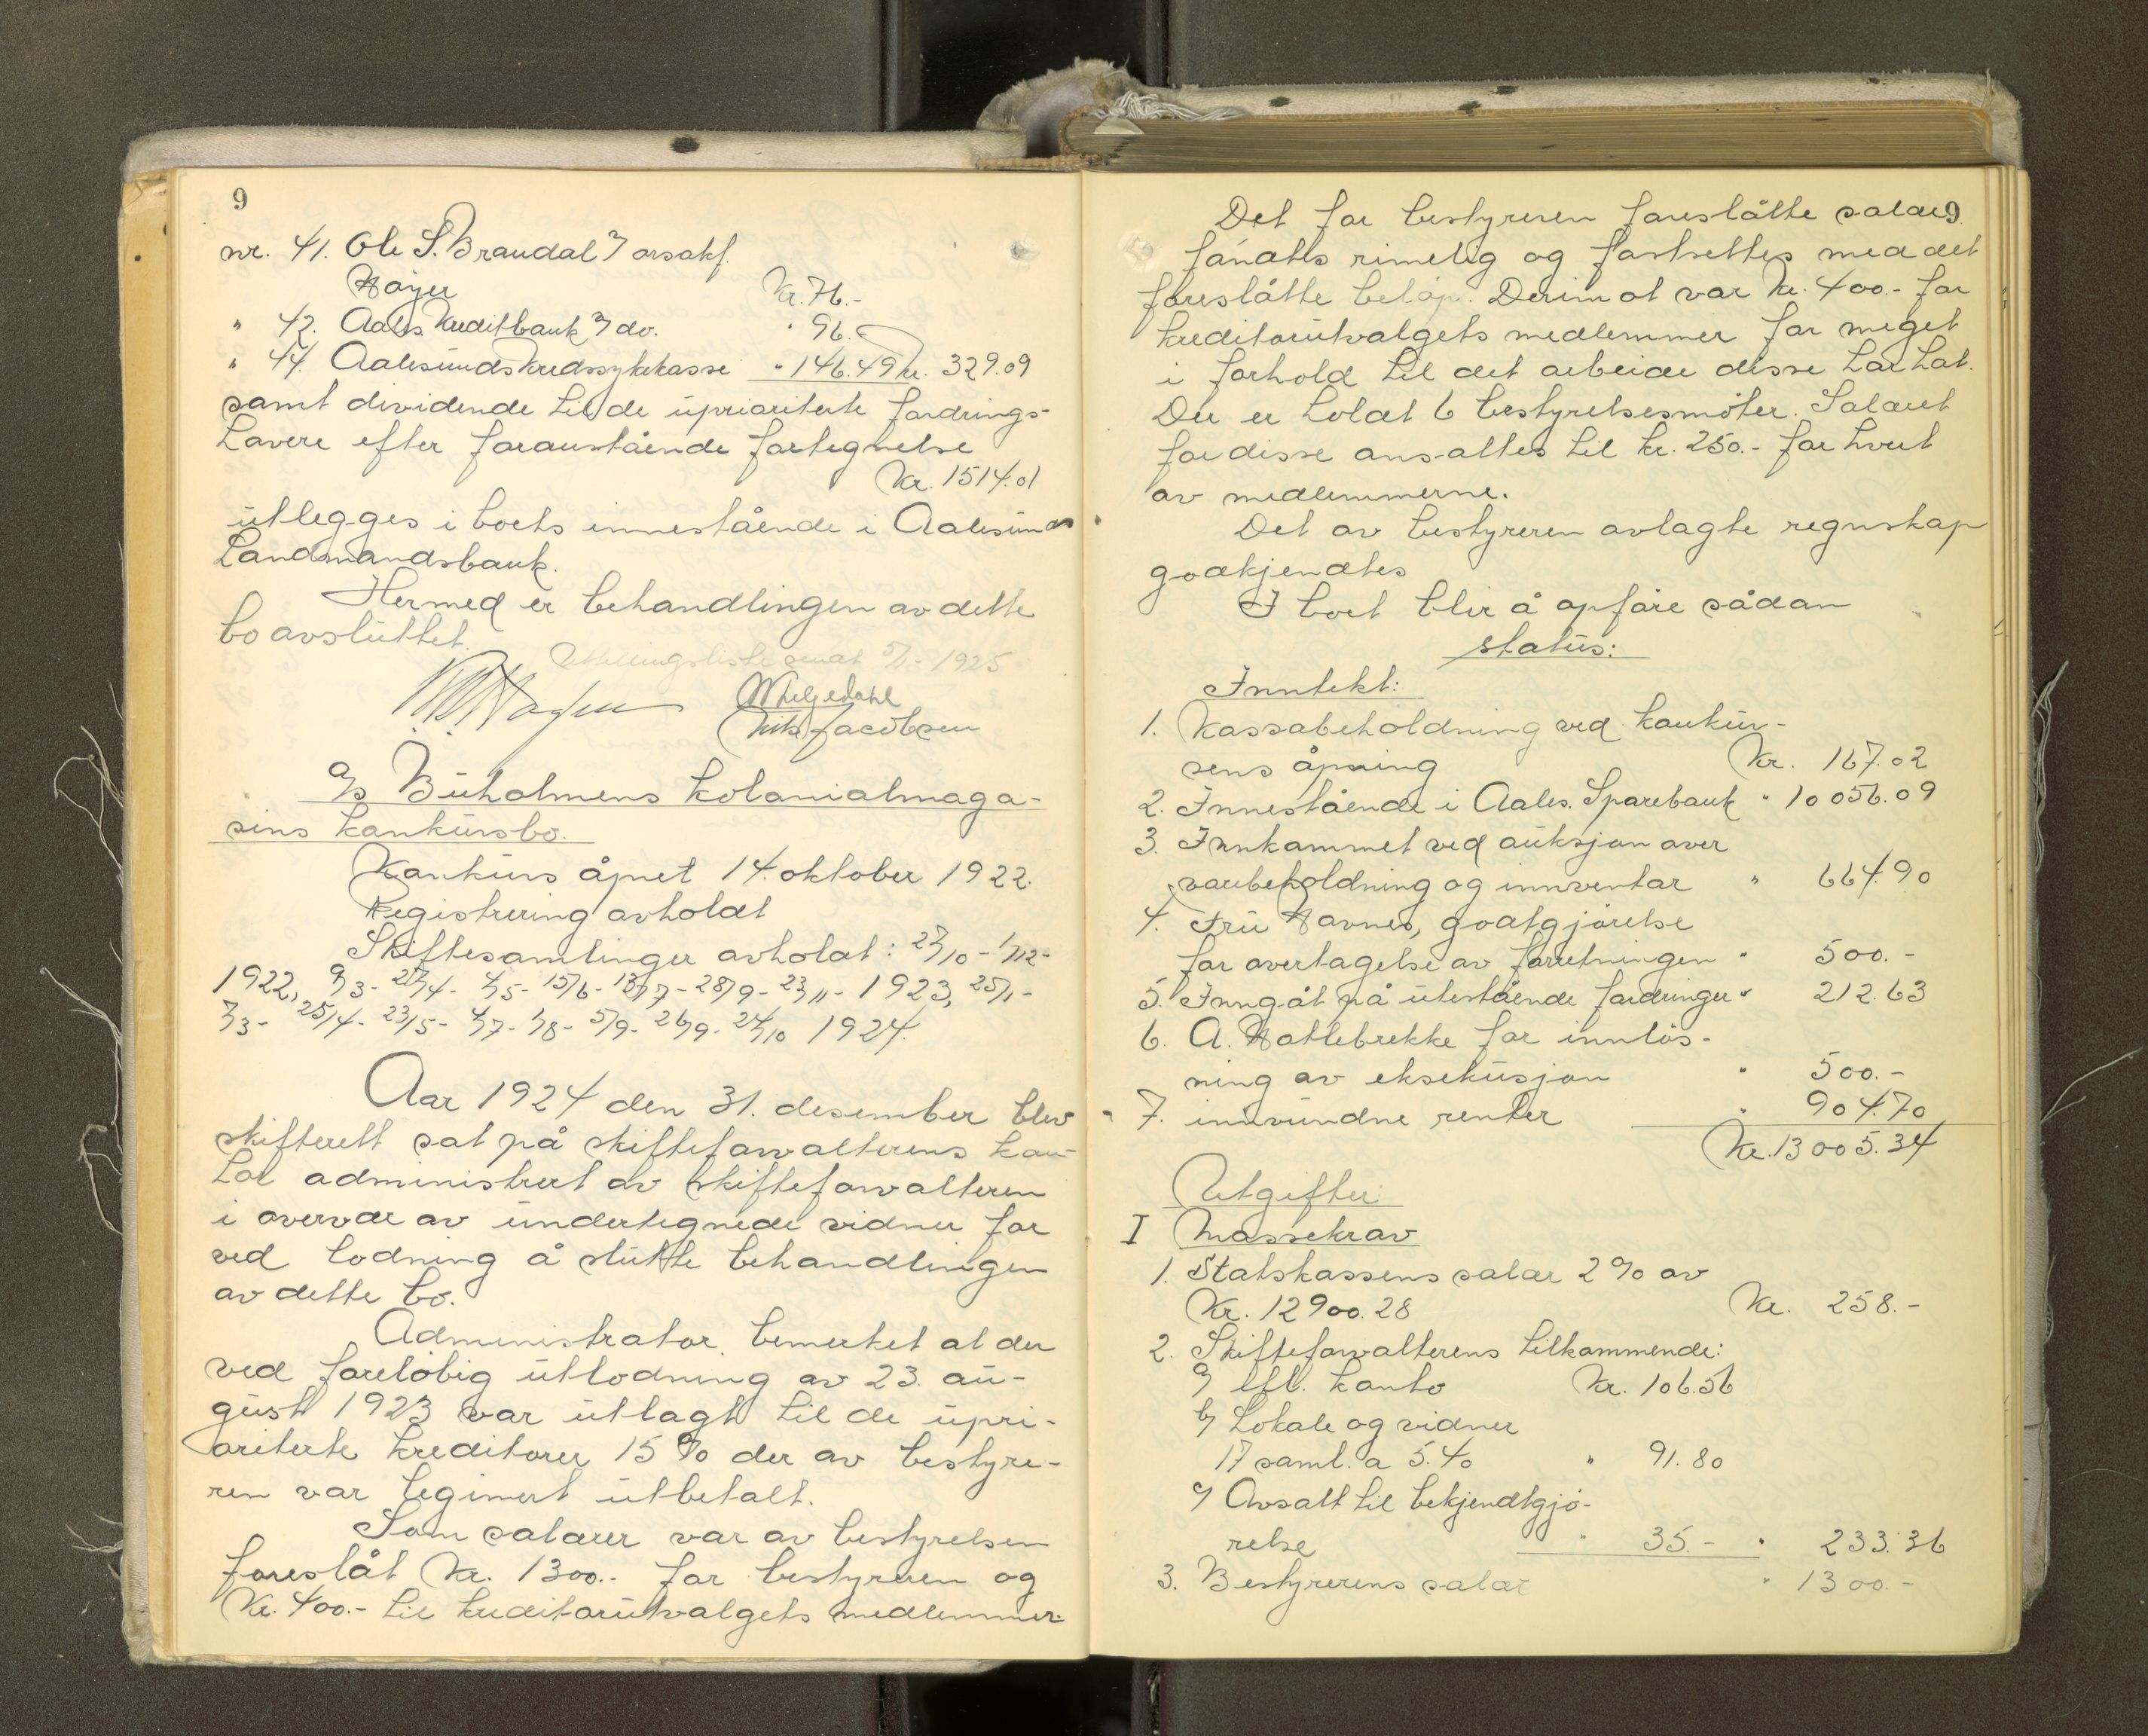 9
nr. 41. Ole S. Brandal v/ orsakf.
Høyer Kr. 76.-
" 42. Aales. Kreditbank v/ do. " 96.-
" 44. Aalesunds kredssykekasse " 146.49 kr. 329.09
samt dividende til de uprioriterte fordrings-
havere efter foranstående fortegnelse
Kr. 1514.01
utlegges i boets innestående i Aalesunds
Landmandsbank.
Hermed er behandlingen av dette
bo avsluttet.
Utdelingsliste sendt 5/1 - 1925
Helgedahl
Jacobsen
a/s Buholmens kolonialmaga-
sins konkursbo.
Konkurs åpnet 14. oktober 1922.
Registrering avholdt
Skiftesamlinger avholdt: 27/10 - 1/12 -
1922, 9/3 - 27/4 - 4/5 - 15/6 - 13/7 - 28/9 - 23/11 - 1923, 25/1 -
7/3 - 25/4 - 23/5 - 4/7 - 1/8 - 5/9 - 26/9 - 24/10 1924.
Aar 1924 den 31. desember blev
skifterett sat på skifteforvalterens kon-
tor administrert av skifteforvalteren
i overvær av undertegnede vidner for
ved lodning å slutte behandlingen
av dette bo.
Administrator bemerket at der
ved foreløbig utlodning av 23. au-
gust 1923 var utlagt til de upri-
oriterte kreditorer 15 % der av bestyre-
ren var begynt utbetalt.
Som salærer var av bestyrelsen
foreslåt Kr. 1300.- for bestyreren og
Kr. 400.- til kreditorutvalgets medlemmer.
9
Det for bestyreren foreslåtte salær
fandtes rimelig og fastsettes med det
foreslåtte beløp. Derimot var kr. 400.- for
kreditorutvalgets medlemmer for meget
i forhold til det arbeide disse har hat.
Der er holdt 6 bestyrelsesmøter. Salæret
for disse ansattes til kr. 250.- for hvert
av medlemmerne.
Det av bestyreren avlagte regnskap
godkjendtes
I boet blir å opføre sådan
status:
Inntekt:
1. Kassabeholdning ved konkur-
sens åpning Kr. 167.02
2. Innestående i Aales. Sparebank " 10 056.09
3. Innkommet ved auksjon over
varebeholdning og innventar " 664.90
4. Fru Havnes, godtgjørelse
for overtagelse av forretningen " 500.-
5. Inngåt på utestående fordringer " 212.63
6. A. Hatlebrekke for innløs-
ning av eksekusjon " 500.-
7. innvundne renter " 904.70
Kr. 13 005.34
Utgifter:
I Massekrav
1. Statskassens salær 2 % av
Kr. 12900.28 Kr. 258.-
2. Skifteforvalterens tilkommende:
a/ efl. konto Kr. 106.56
b/ Lokale og vidner
17 saml. a 5.40 " 91.80
c/ Avsatt til bekjendtgjø-
relse " 35.- " 233.36
3. Bestyrerens salær " 1300.-